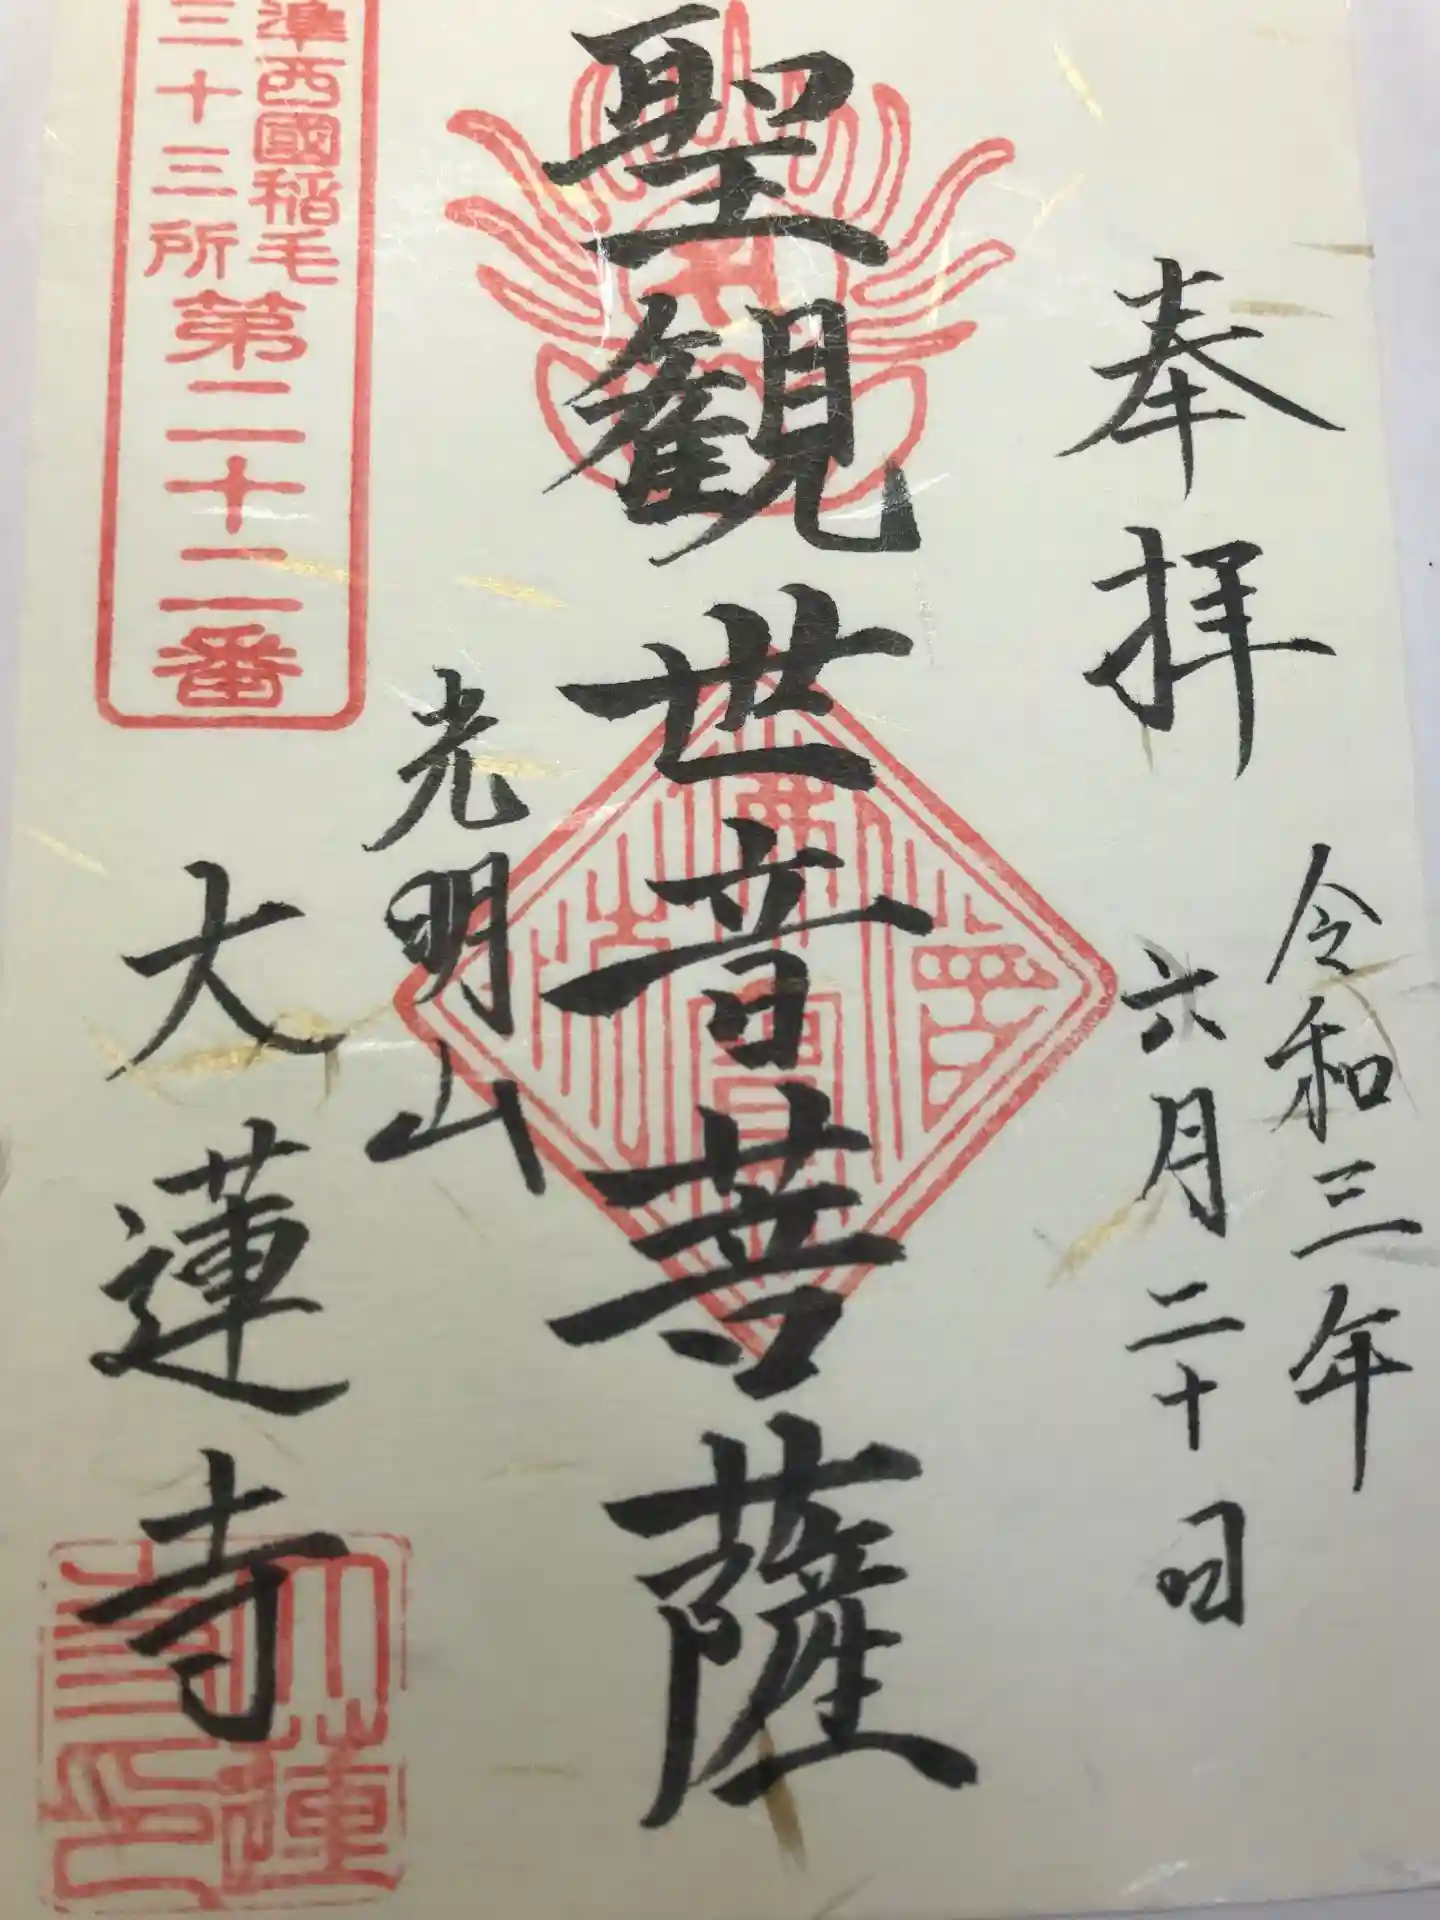 奉拝
令和三年
六月二十日
聖観世音菩薩
光明山
大蓮寺
準西國稲毛
三十三所
第二十二番
大蓮
寺印